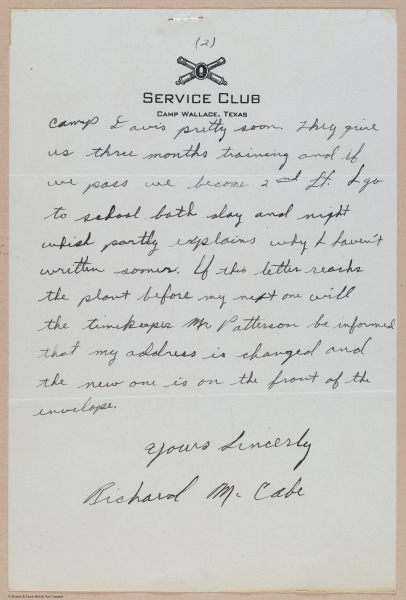 (2)
SERVICE CLUB
CAMP WALLACE, TEXAS
camp Davis pretty soon. They give
us three months training and if
we pass we become 2nd Lt. I go
to school both day and night
which partly explains why I haven't
written sooner. If this letter reachs
the plant before my next one will
the timekeeper Mr Patterson be informed
that my address is changed and
the new one is on the front of the
envelope.
Yours Sincerly
Richard Mc Cabe